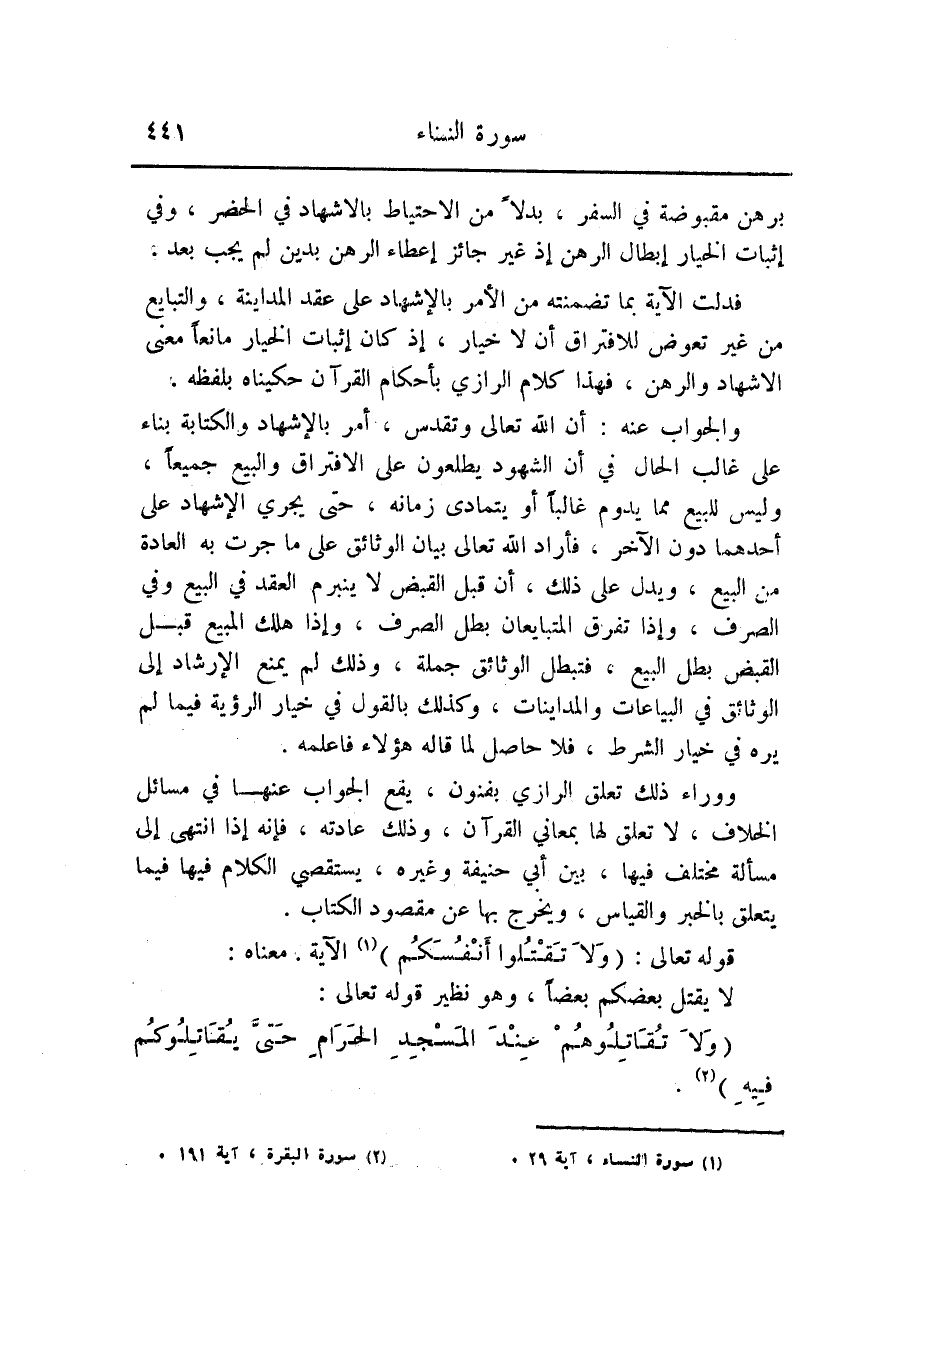 سورة النساء ٤٤١
برهن مقبوضة في السفر ، بدلاً من الاحتياط بالاشهاد في الحضر ، وفي
إثبات الخيار إبطال الرهن إذ غير جائز إعطاء الرهن بدين لم يجب بعد :
فدلت الآية بما تضمنته من الأمر بالإشهاد على عقد المداينة ، والتبايع
من غير تعوض للافتراق أن لا خيار ، إذ كان إثبات الخيار مانعاً معنى
الاشهاد والرهن ، فهذا كلام الرازي بأحكام القرآن حكيناه بلفظه .
والجواب عنه : أن الله تعالى وتقدس ، أمر بالإشهاد والكتابة بناء
على غالب الحال في أن الشهود يطلعون على الافتراق والبيع جميعاً ،
وليس للبيع مما يدوم غالباً أو يتمادى زمانه ، حتى يجري الإشهاد على
أحدهما دون الآخر ، فأراد الله تعالى بيان الوثائق على ما جرت به العادة
من البيع ، ويدل على ذلك ، أن قبل القبض لا ينبرم العقد في البيع وفي
الصرف ، وإذا تفرق المتبايعان بطل الصرف ، وإذا هلك المبيع قبـــل
القبض بطل البيع ، فتبطل الوثائق جملة ، وذلك لم يمنع الإرشاد إلى
الوثائق في البياعات والمداينات ، وكذلك بالقول في خيار الرؤية فيما لم
يره في خيار الشرط ، فلا حاصل لما قاله هؤلاء فاعلمه .
ووراء ذلك تعلق الرازي بفنون ، يفع الجواب عنهـــا في مسائل
الخلاف ، لا تعلق لها بمعاني القرآن ، وذلك عادته ، فإنه إذا انتهى إلى
مسألة مختلف فيها ، بين أبي حنيفة وغيره ، يستقصي الكلام فيها فيما
يتعلق بالخبر والقياس ، ويخرج بها عن مقصود الكتاب .
قوله تعالى : ( وَلاَ تَقْتُلُوا أَنْفُسَكُم )(١) الآية . معناه :
لا يقتل بعضكم بعضاً ، وهو نظير قوله تعالى :
( وَلاَ تُقَاتِلُوهُمْ عِنْدَ المَسْجِدِ الحَرَامِ حَتَّى يُقَاتِلُوكُم
فِيهِ )(٢) .
(١) سورة النساء ، آية ٢٩ . (٢) سورة البقرة ، آية ١٩١ .